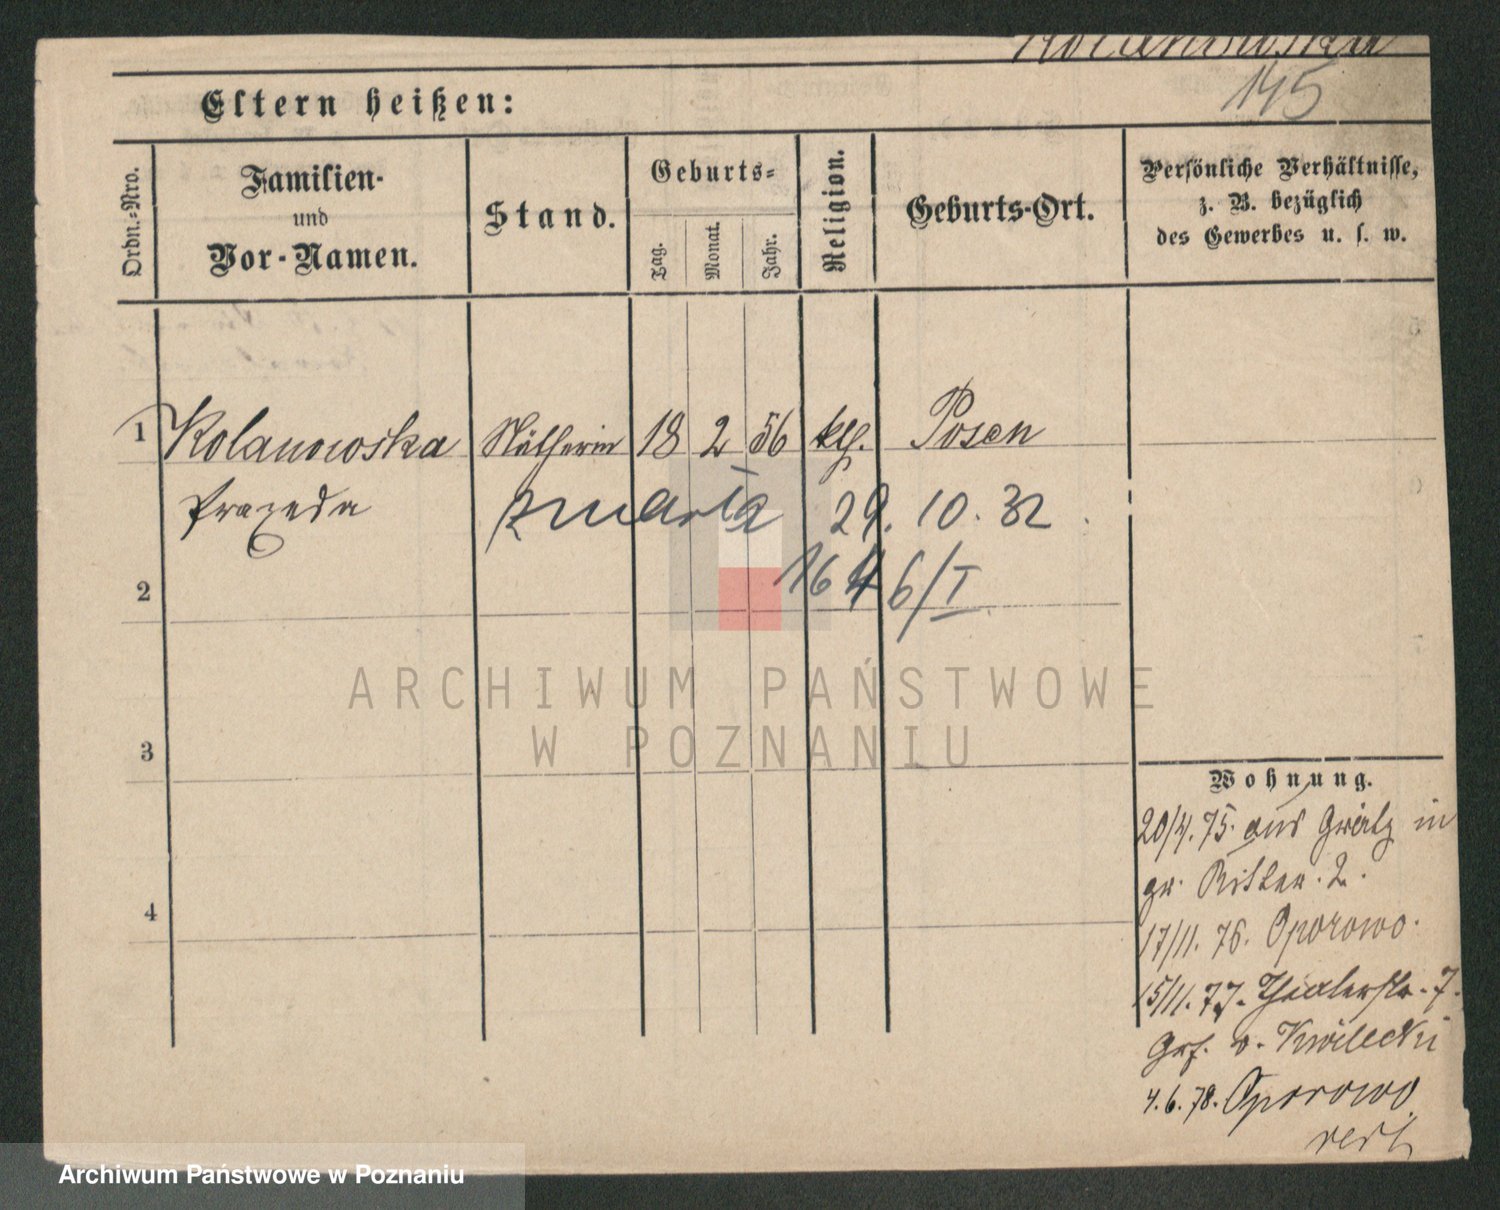 Kolanowska
145
Eltern heißen:
Ordn.-Nro.
Familien-
und
Vor-Namen.
Stand.
Geburts-
Tag.
Monat.
Jahr.
Religion.
Geburts-Ort.
Persönliche Verhältnisse,
z. B. bezüglich
des Gewerbes u. s. w.
1 Kolanowska Nätherin 18 2 56 kth. Posen
Praxeda zmarła 29. 10. 32.
1646/I
2
3
4
ARCHIWUM PAŃSTWOWE
W POZNANIU
Wohnung.
20/4. 75. aus Grätz in
gr. Ritter. 2.
17/11. 76. Oporowo.
15/11. 77. Theaterstr. 7.
Grf. v. Kwilecki
4. 6. 78. Oporowo
Archiwum Państwowe w Poznaniu